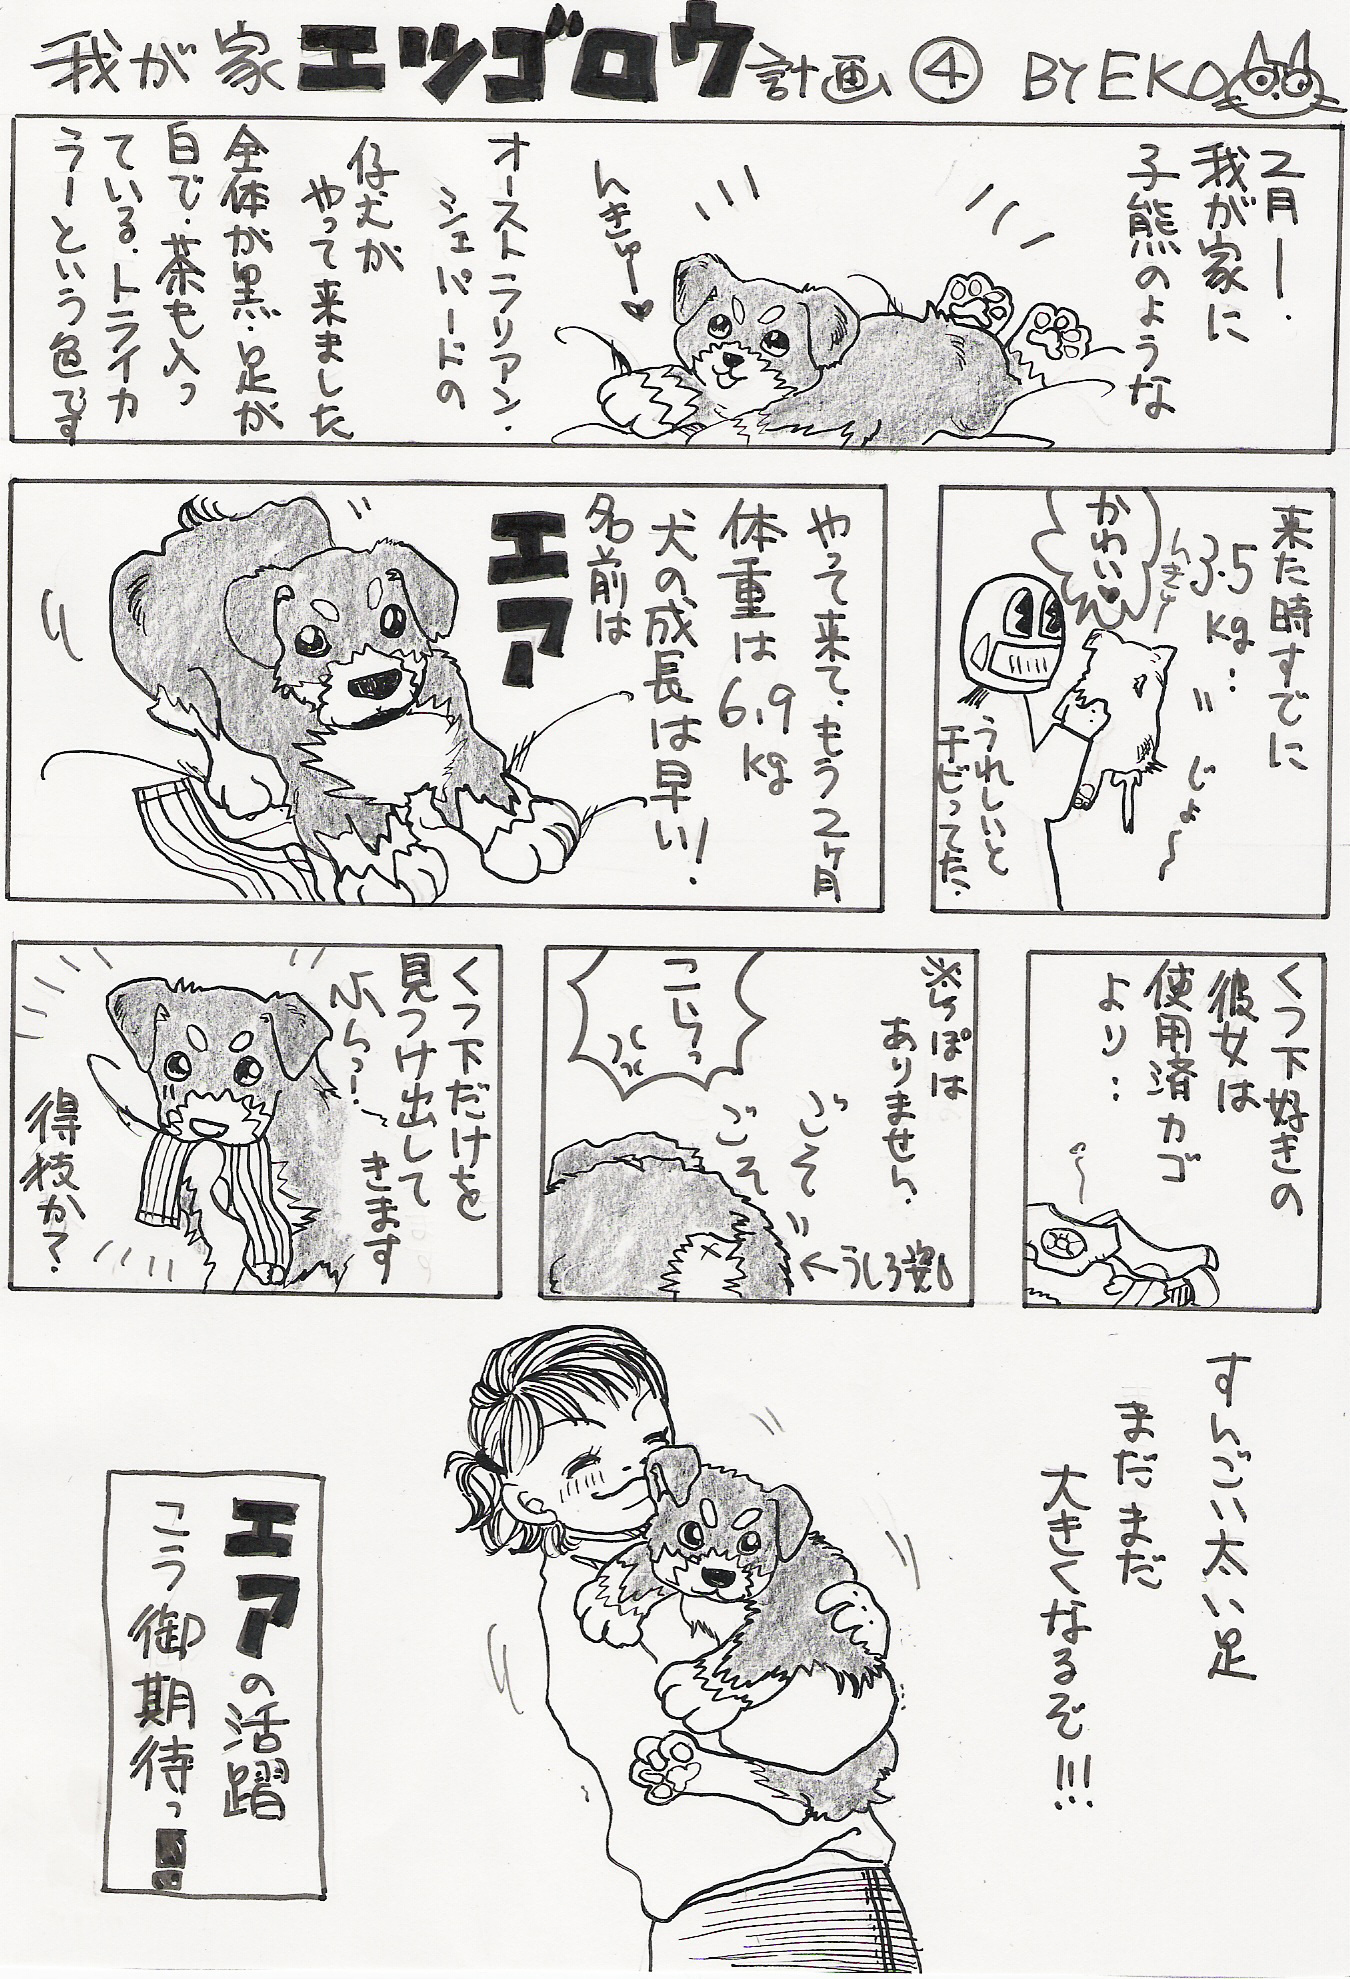 我が家エツゴロウ計画④ BY EKO
2月ー.
我が家に
子熊のような
んきゅー♥
オーストラリアン・
シェパードの
仔犬が
やって来ました
全体が黒・足が
白で・茶も入っ
ている・トライカ
ラーという色です
来た時すでに
3.5kg…
んきゅ
じょ〜
かわいい♥
うれしいと
チビってた.
やって来て、もう2ヶ月
体重は6.9kg
犬の成長は早い!
名前は
エア
くつ下好きの
彼女は
使用済カゴ
より…
※しっぽは
ありません.
ごそごそ
こらっ
←うしろ姿
くつ下だけを
見つけ出して
きます
得技か?
すんごい太い足
まだまだ
大きくなるぞ!!!
エアの活躍
こう御期待っ!!